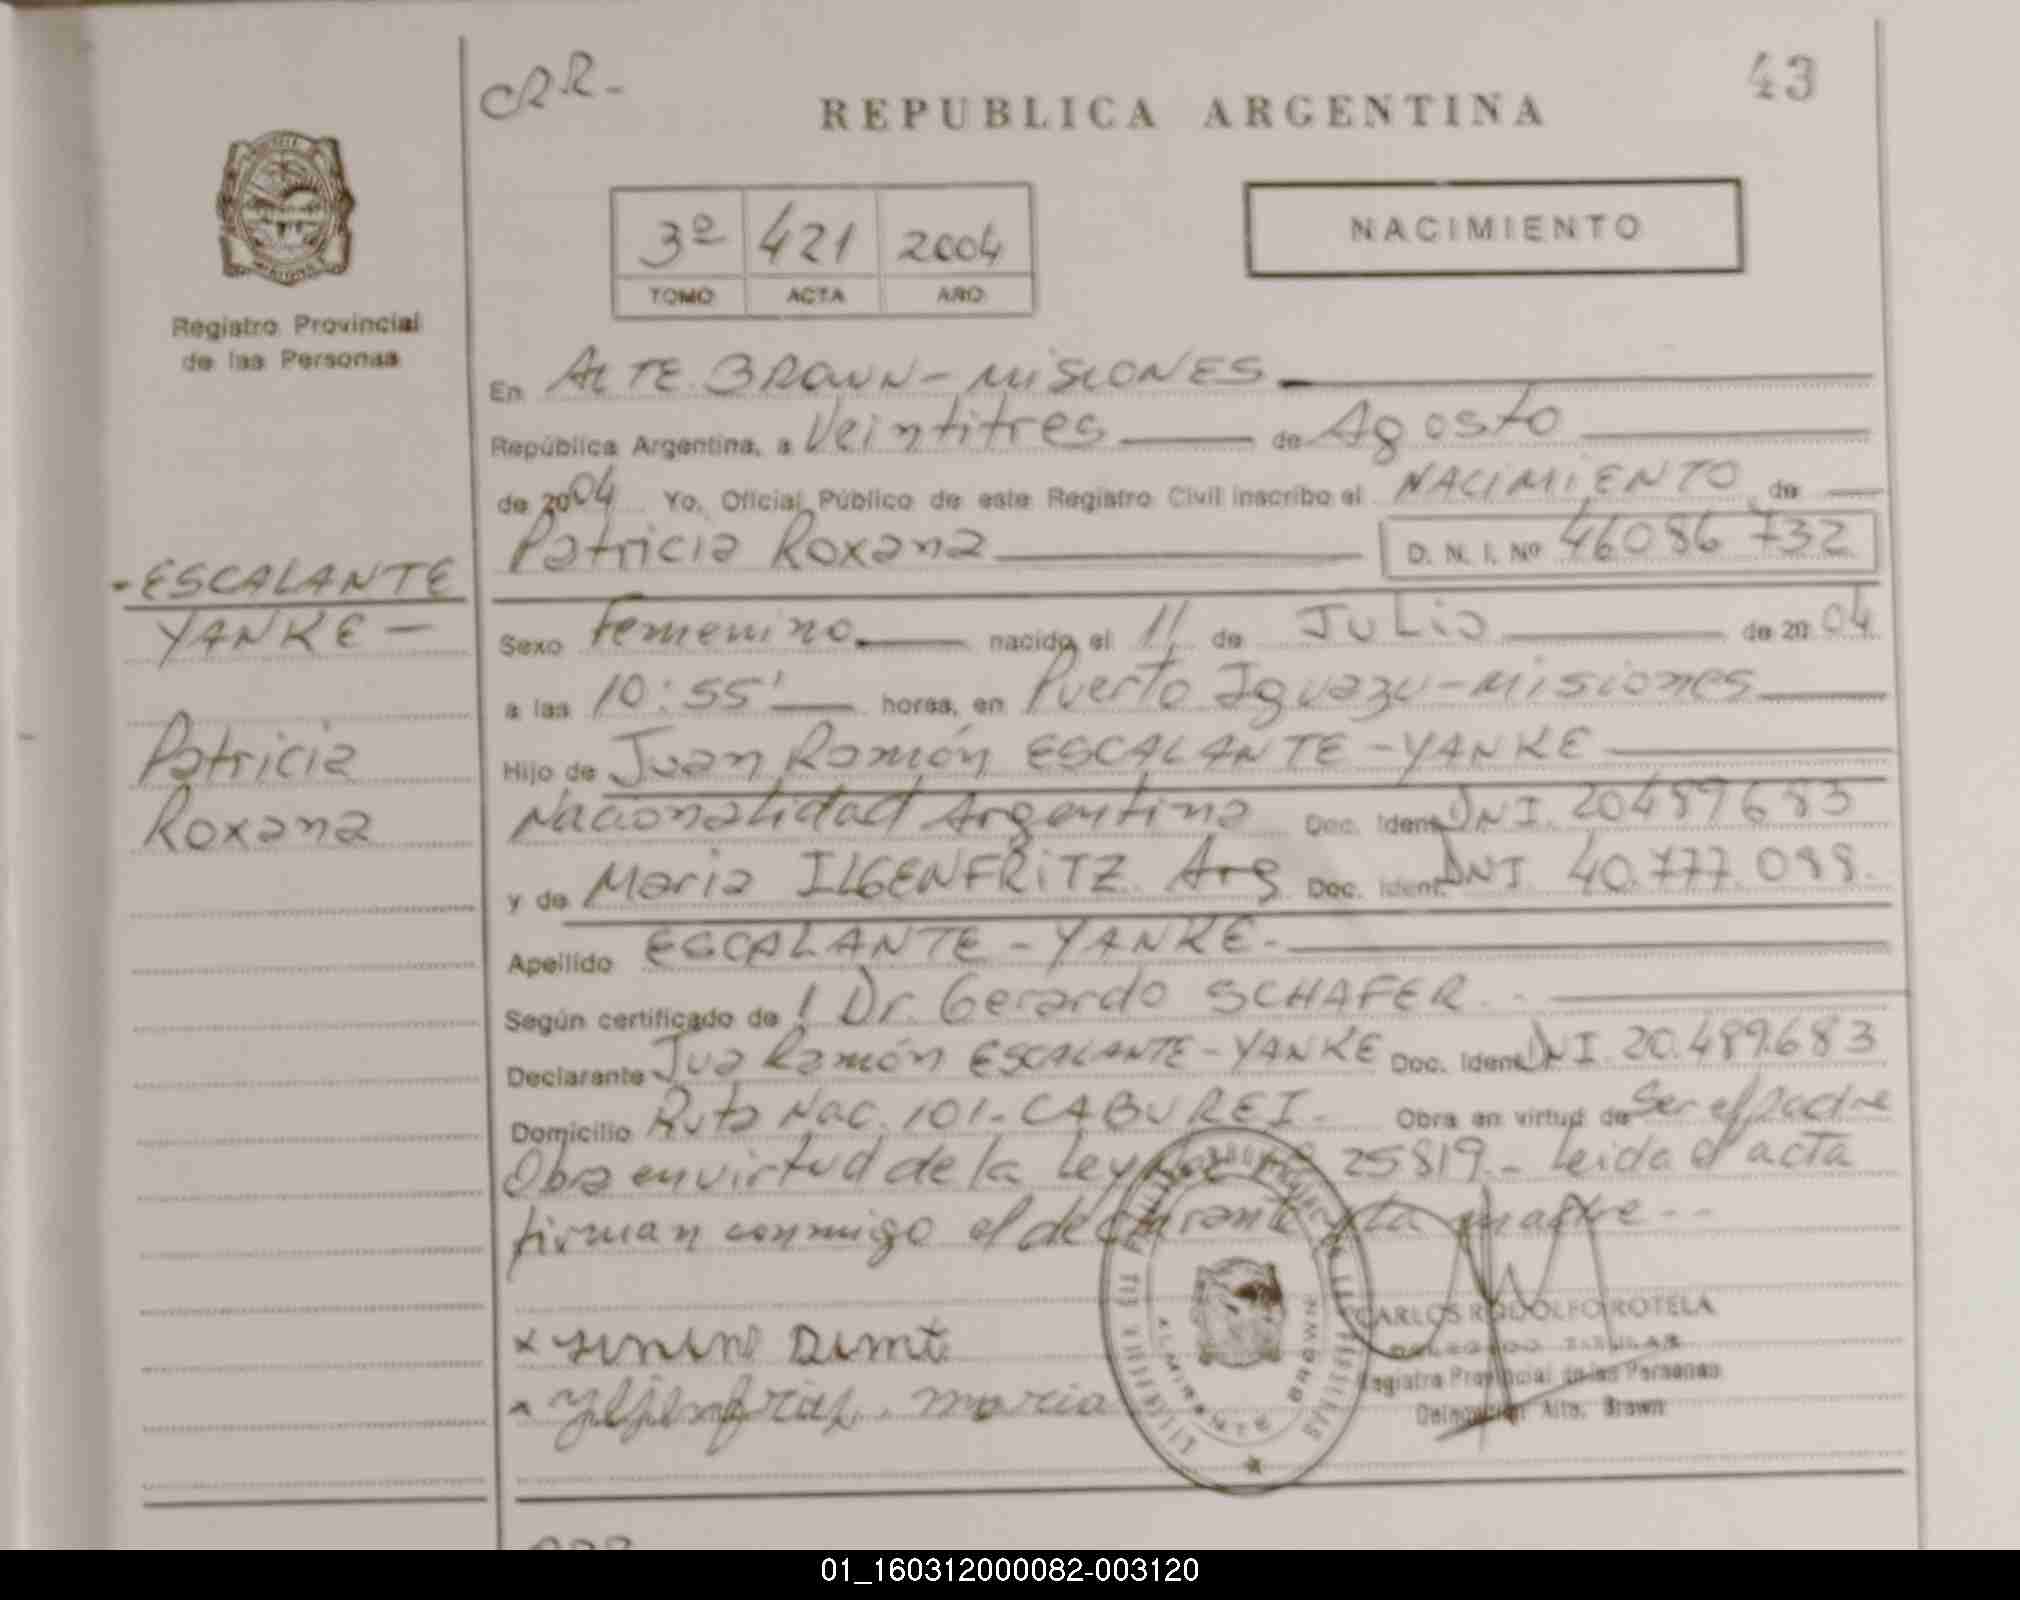 CRR-
43
REPUBLICA ARGENTINA
3º 421 2004
TOMO ACTA AÑO
NACIMIENTO
Registro Provincial
de las Personas
En ALTE. BROWN - MISIONES
República Argentina, a Veintitres de Agosto
de 2004 Yo, Oficial Público de este Registro Civil inscribo el NACIMIENTO de
Patricia Roxana D. N. I. Nº 46086732
- ESCALANTE
YANKE -
Patricia
Roxana
Sexo Femenino nacido el 11 de Julio de 2004
a las 10:55' horas, en Puerto Iguazu - Misiones
Hijo de Juan Ramón ESCALANTE - YANKE
Nacionalidad Argentina Doc. Ident. DNI. 20489683
y de Maria ILGENFRITZ. Arg Doc. Ident. DNI 40.777.099.
Apellido ESCALANTE - YANKE.
Según certificado de l Dr. Gerardo SCHAFER.
Declarante Jua Ramón ESCALANTE - YANKE Doc. Ident. DNI. 20.489.683
Domicilio Ruta Nac. 101 - CABUREI - Obra en virtud de Ser el padre
Obra en virtud de la Ley 25819 - leida el acta
firman conmigo el declarante y la madre - -
maria
ALMIRANTE BROWN
CARLOS RODOLFO ROTELA
DELEGADO TITULAR
Registro Provincial de las Personas
Delegación Alte. Brown
01_160312000082-003120